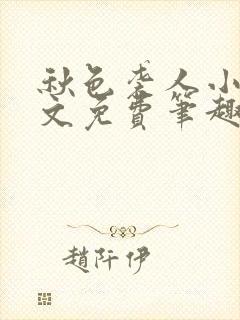 秋色袭人小
文免費筆趣
趙阡伊